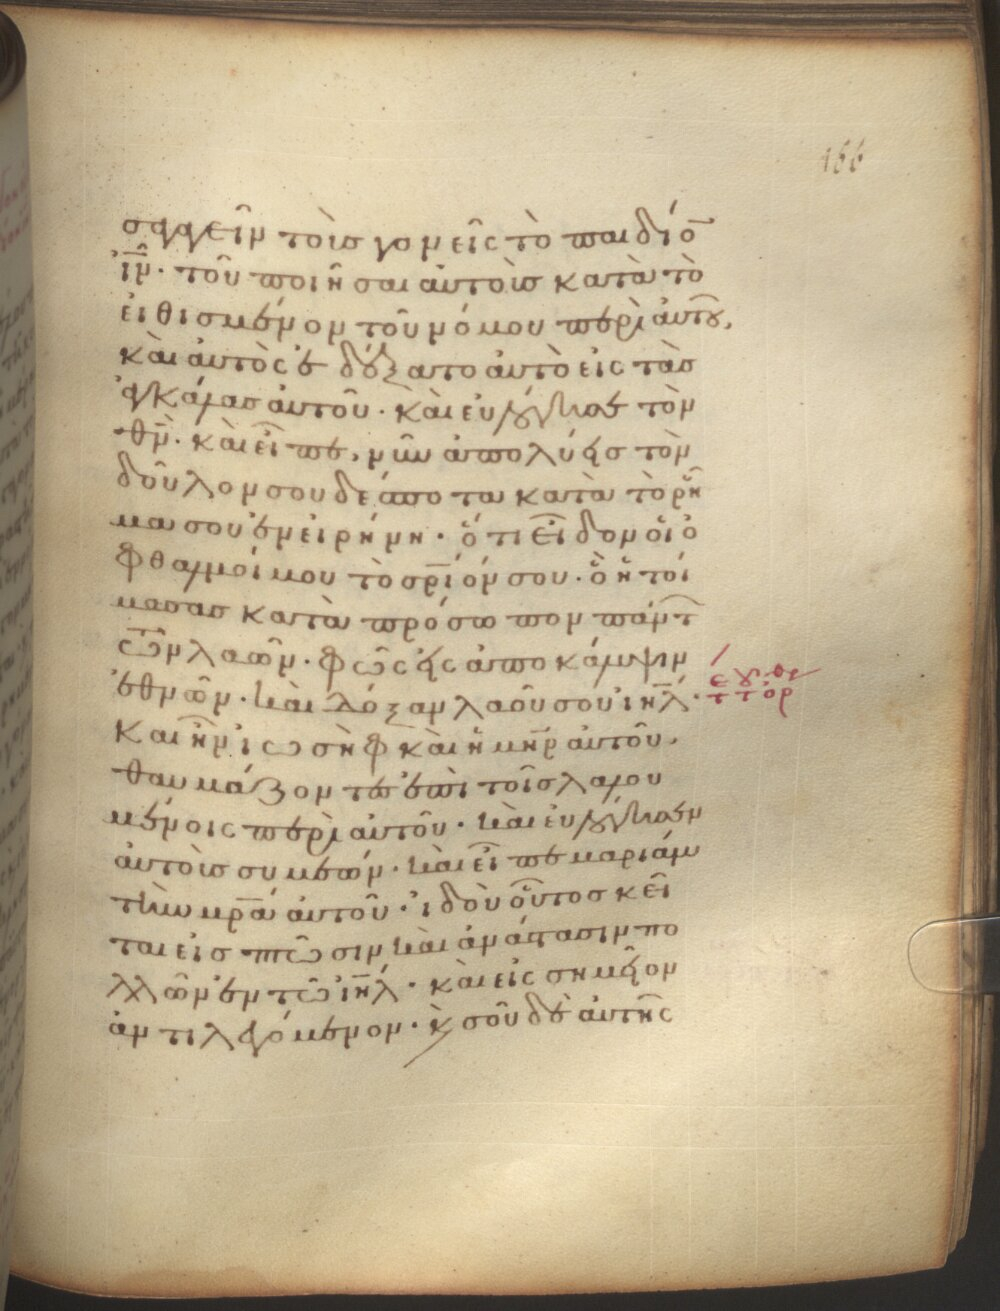 166
σαγαγεῖν τοὺσ γονεῖς τὸ παιδίο̅
ἰ̅ν̅· τοῦ ποιῆσαι αὐτοὺσ κατὰ τὸ
εἰθισμένον τοῦ νόμου περὶ αὐτοῦ,
καὶ αὐτὸς ἐδέξατο αὐτὸ εἰς τὰσ
ἀγκάλασ αὐτοῦ· καὶ εὐλόγησε τὸν
θ̅ν̅· καὶ εἶπε, νῦν ἀπολύεισ τὸν
δοῦλον σου δέσποτα κατὰ τὸ ρῆ
μα σου ἐν εἰρήνη· ὅτι εἶδον οἱ ὀ
φθαλμοί μου τὸ σρ̅ιόν σου· ὃ ἡτοί
μασασ κατὰ πρόσωπον πάντ
ων τῶν λαῶν· φῶς εἰς ἀποκάλυψιν
ἐθνῶν· καὶ δόξαν λαοῦ σου ἰη̅λ·
καὶ ἦν ἰωσὴφ καὶ ἡ μη̅ρ αὐτοῦ.
θαυμάζοντε ἐπὶ τοῖσ λαλου
μένοις περὶ αὐτοῦ· καὶ εὐλόγησεν
αὐτοὺσ συμεών· καὶ εἶπε μαριὰμ
τὴν μρ̅α αὐτοῦ· ἰδοὺ οὗτοσ κεῖ
ται εἰσ πτῶσιν καὶ ἀνάστασιν πο
λλῶν ἐν τῶ ἰη̅λ· καὶ εἰς σημεῖον
ἀντιλεγόμενον· κ̀ σοῦ δὲ αὐτῆς